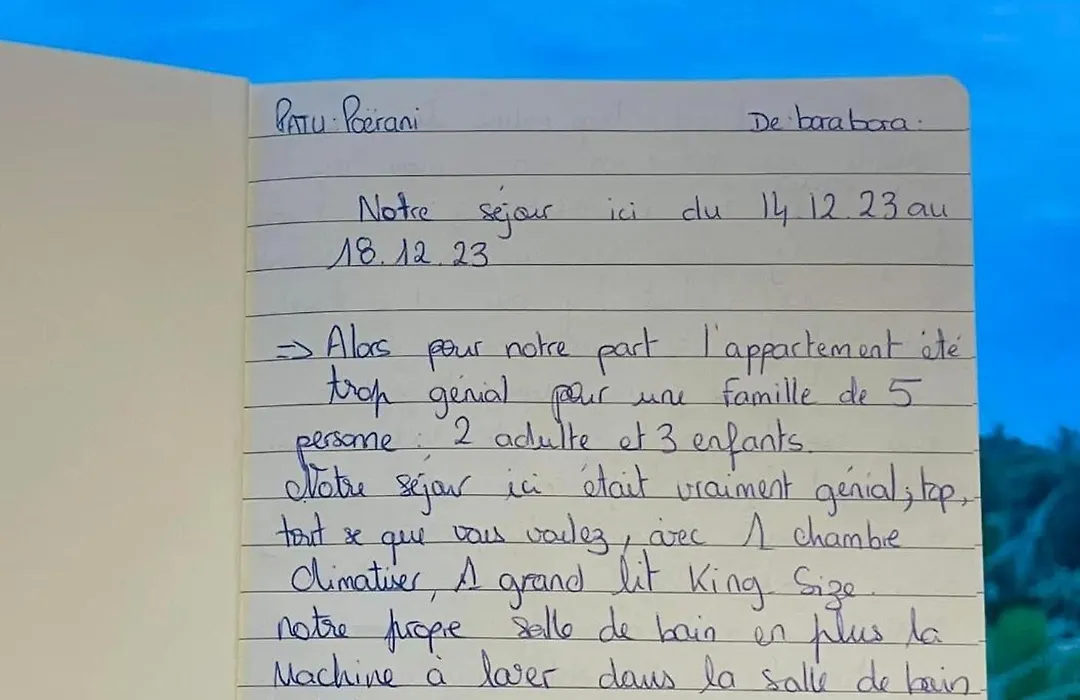 PATU: Poërani De bora bora:
Notre séjour ici du 14.12.23 au
18.12.23
=> Alors pour notre part l'appartement été
trop génial pour une famille de 5
persome: 2 adulte et 3 enfants.
Notre séjour ici était vraiment génial, top,
tout se que vous voulez, avec 1 chambre
climatiser, 1 grand lit King Size.
notre propre salle de bain en plus la
Machine à laver dans la salle de bain